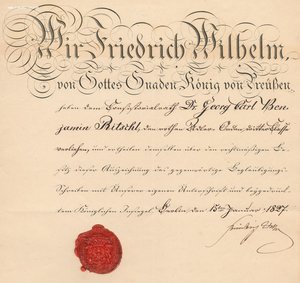 Wir Friedrich Wilhelm,
von Gottes Gnaden, König von Preußen
haben dem Consistorialrath Dr Georg Carl Ben
jamin Ritschl, den rothen Adler-Orden dritter Klasse
verliehen, und ertheilen demselben über den rechtmäßigen Be
sitz dieser Auszeichnung das gegenwärtige Beglaubigungs
Schreiben mit Unserer eigenen Unterschrift und beygedruck
tem Königlichen Insiegel. Berlin den 15ten Januar 1827.